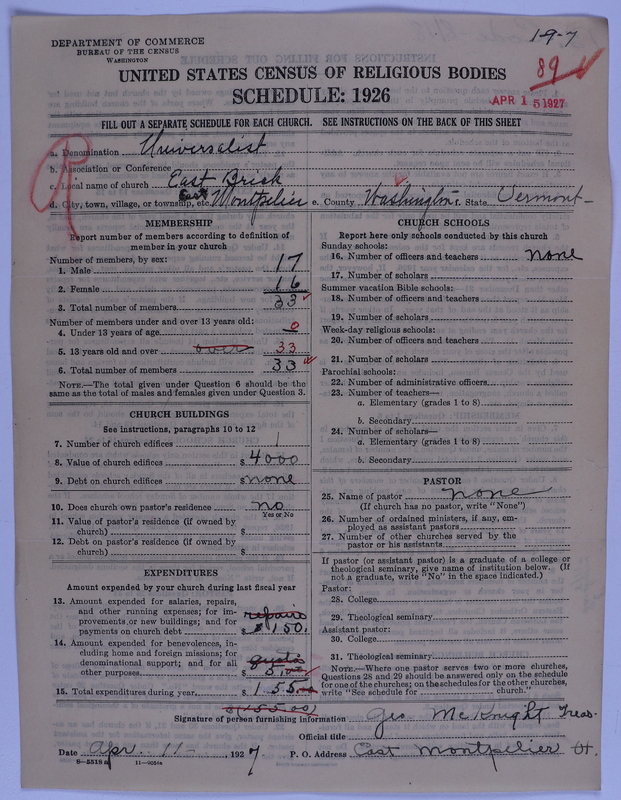 1-9-7
DEPARTMENT OF COMMERCE
BUREAU OF THE CENSUS
WASHINGTON
89
APR 15 1927
UNITED STATES CENSUS OF RELIGIOUS BODIES
SCHEDULE: 1926
FILL OUT A SEPARATE SCHEDULE FOR EACH CHURCH. SEE INSTRUCTIONS ON THE BACK OF THIS SHEET
a. Denomination Universalist
b. Association or Conference
c. Local name of church East Brick
d. City, town, village, or township, etc. East Montpelier e. County Washington f. State Vermont
MEMBERSHIP
Report number of members according to definition of
member in your church
Number of members, by sex:
1. Male 17
2. Female 16
3. Total number of members 33
Number of members under and over 13 years old:
4. Under 13 years of age 0
5. 13 years old and over over 33
6. Total number of members 33
NOTE.—The total given under Question 6 should be the
same as the total of males and females given under Question 3.
CHURCH BUILDINGS
See instructions, paragraphs 10 to 12
7. Number of church edifices 1
8. Value of church edifices $4000
9. Debt on church edifices $none
10. Does church own pastor's residence no
Yes or No
11. Value of pastor's residence (if owned by
church) $
12. Debt on pastor's residence (if owned by
church) $
EXPENDITURES
Amount expended by your church during last fiscal year
13. Amount expended for salaries, repairs,
and other running expenses; for im-
provements or new buildings; and for repairs
payments on church debt $150.
14. Amount expended for benevolences, in-
cluding home and foreign missions; for
denominational support; and for all
other purposes $5.00
15. Total expenditures during year $155.00
$155.00
CHURCH SCHOOLS
Report here only schools conducted by this church
Sunday schools:
16. Number of officers and teachers none
17. Number of scholars
Summer vacation Bible schools:
18. Number of officers and teachers
19. Number of scholars
Week-day religious schools:
20. Number of officers and teachers
21. Number of scholars
Parochial schools:
22. Number of administrative officers
23. Number of teachers—
a. Elementary (grades 1 to 8)
b. Secondary
24. Number of scholars—
a. Elementary (grades 1 to 8)
b. Secondary
PASTOR
25. Name of pastor none
(If church has no pastor, write "None")
26. Number of ordained ministers, if any, em-
ployed as assistant pastors
27. Number of other churches served by the
pastor or his assistants
If pastor (or assistant pastor) is a graduate of a college or
theological seminary, give name of institution below. (If
not a graduate, write "No" in the space indicated.)
Pastor:
28. College
29. Theological seminary
Assistant pastor:
30. College
31. Theological seminary
NOTE.—Where one pastor serves two or more churches,
Questions 28 and 29 should be answered only on the schedule
for one of the churches; on the schedules for the other churches,
write "See schedule for church."
Signature of person furnishing information Geo McKnight Treas.
Official title
Date Apr. 11-, 1927. P. O. Address East Montpelier Vt.
8—5518a 11—9052a